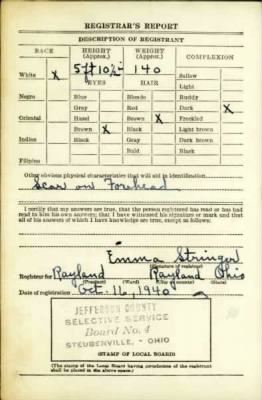 REGISTRAR'S REPORT
DESCRIPTION OF REGISTRANT
RACE
HEIGHT (Approx.)
WEIGHT (Approx.)
COMPLEXION
White X
5 ft 10½
140
Sallow
EYES
HAIR
Light
Negro
Blue
Blonde
Ruddy
Gray
Red
Dark X
Oriental
Hazel
Brown X
Freckled
Brown X
Black
Light brown
Indian
Black
Gray
Dark brown
Bald
Black
Filipino
Other obvious physical characteristics that will aid in identification
Scar on Forehead
I certify that my answers are true; that the person registered has read or has had read to him his own answers; that I have witnessed his signature or mark and that all of his answers of which I have knowledge are true, except as follows:
Emma Stringer
(Signature of registrar)
Registrar for Rayland Rayland Ohio
(Precinct) (Ward) (City or county) (State)
Date of registration Oct. 16, 1940
JEFFERSON COUNTY
SELECTIVE SERVICE
Board No. 4
STEUBENVILLE, - OHIO
(STAMP OF LOCAL BOARD)
(The stamp of the Local Board having jurisdiction of the registrant shall be placed in the above space.)